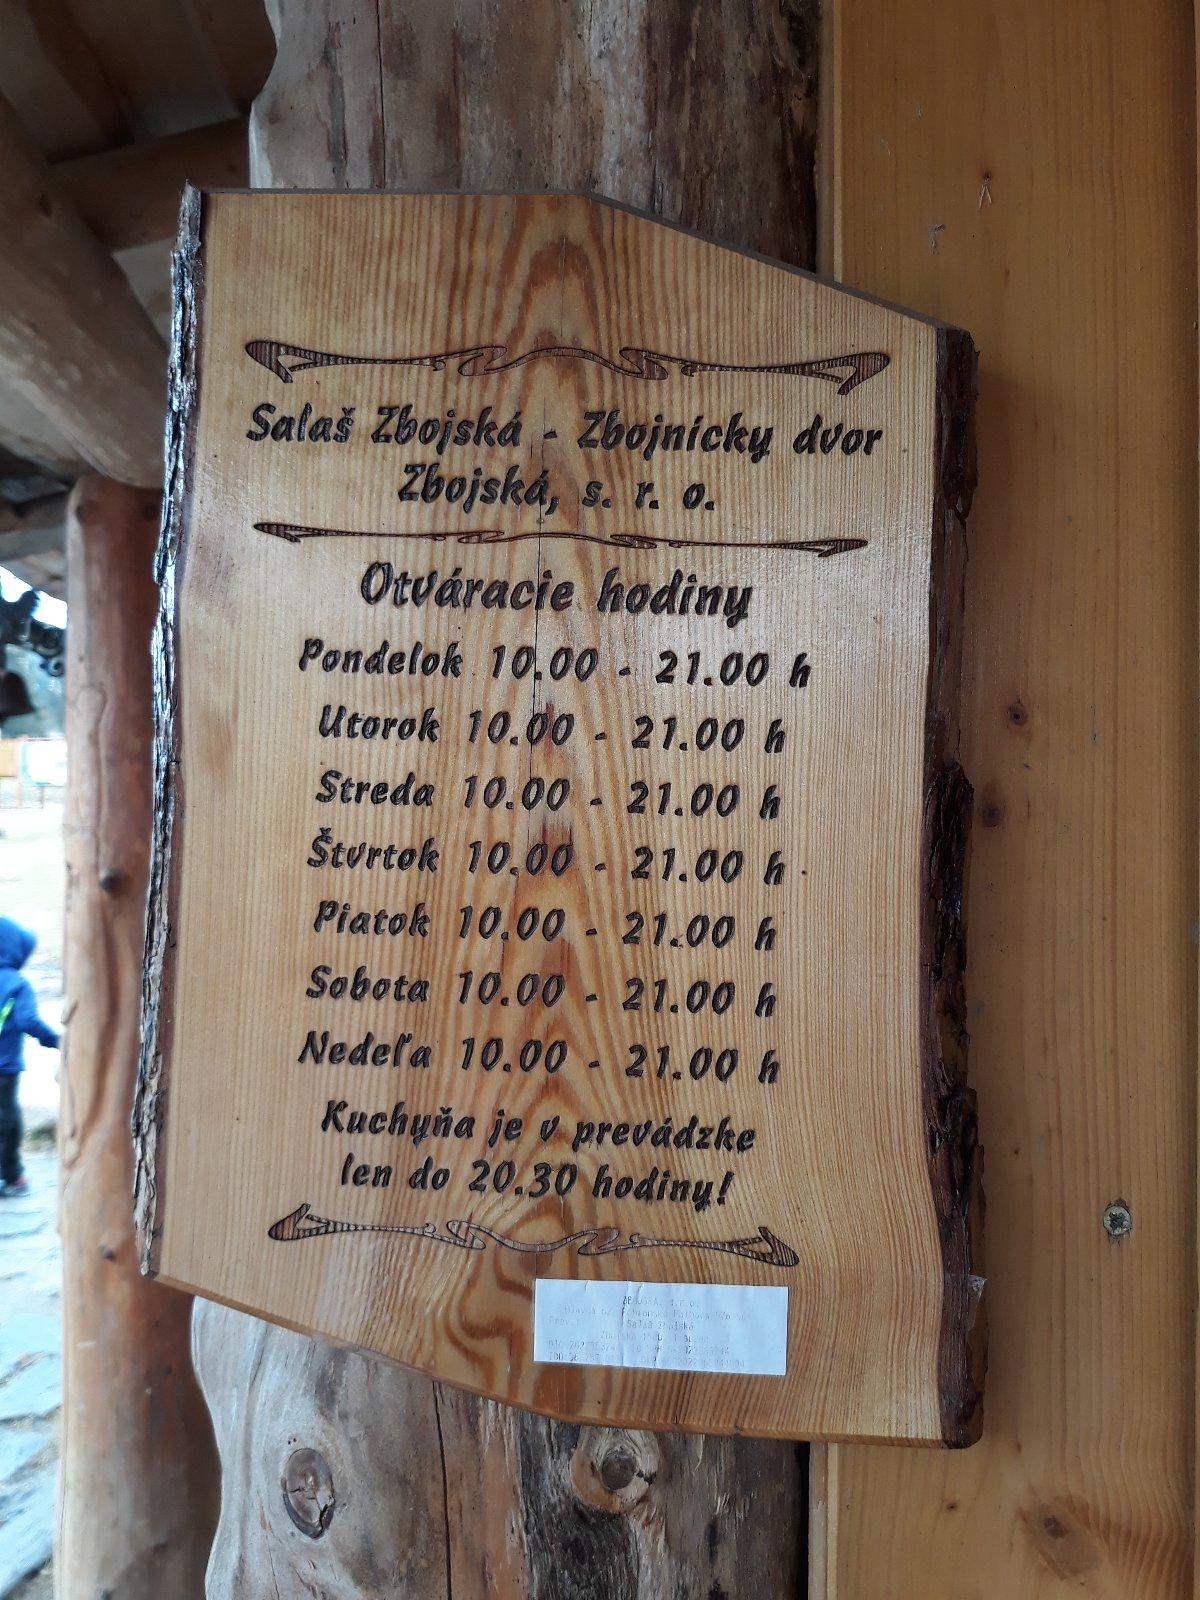 Salaš Zbojská - Zbojnícky dvor
Zbojská, s. r. o.
Otváracie hodiny
Pondelok 10.00 - 21.00 h
Utorok 10.00 - 21.00 h
Streda 10.00 - 21.00 h
Štvrtok 10.00 - 21.00 h
Piatok 10.00 - 21.00 h
Sobota 10.00 - 21.00 h
Nedeľa 10.00 - 21.00 h
Kuchyňa je v prevádzke
len do 20.30 hodiny!
s.r.o.
Salaš Zbojská